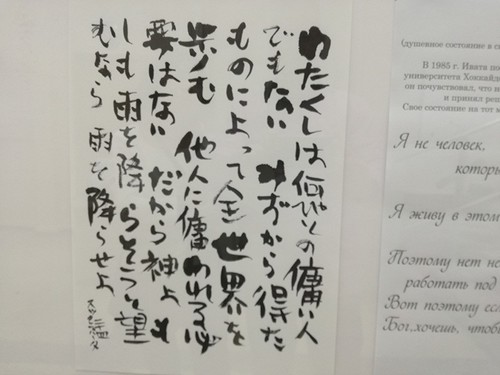 わたくしは何びとの傭い人
でもない みずから得た
ものによって全世界を
歩む 他人に傭われる必
要はない だから神よ も
しも雨を降らそうと望
むなら 雨を降らせよ
(душевное состояние в с
В 1985 г. Ивата по
университета Хоккайд
он почувствовал, что н
и принял ре
Свое состояние на тот
Я не человек,
которы
Я живу в этом
Поэтому нет не
работать под
Вот поэтому есл
Бог,хочешь, чтоб